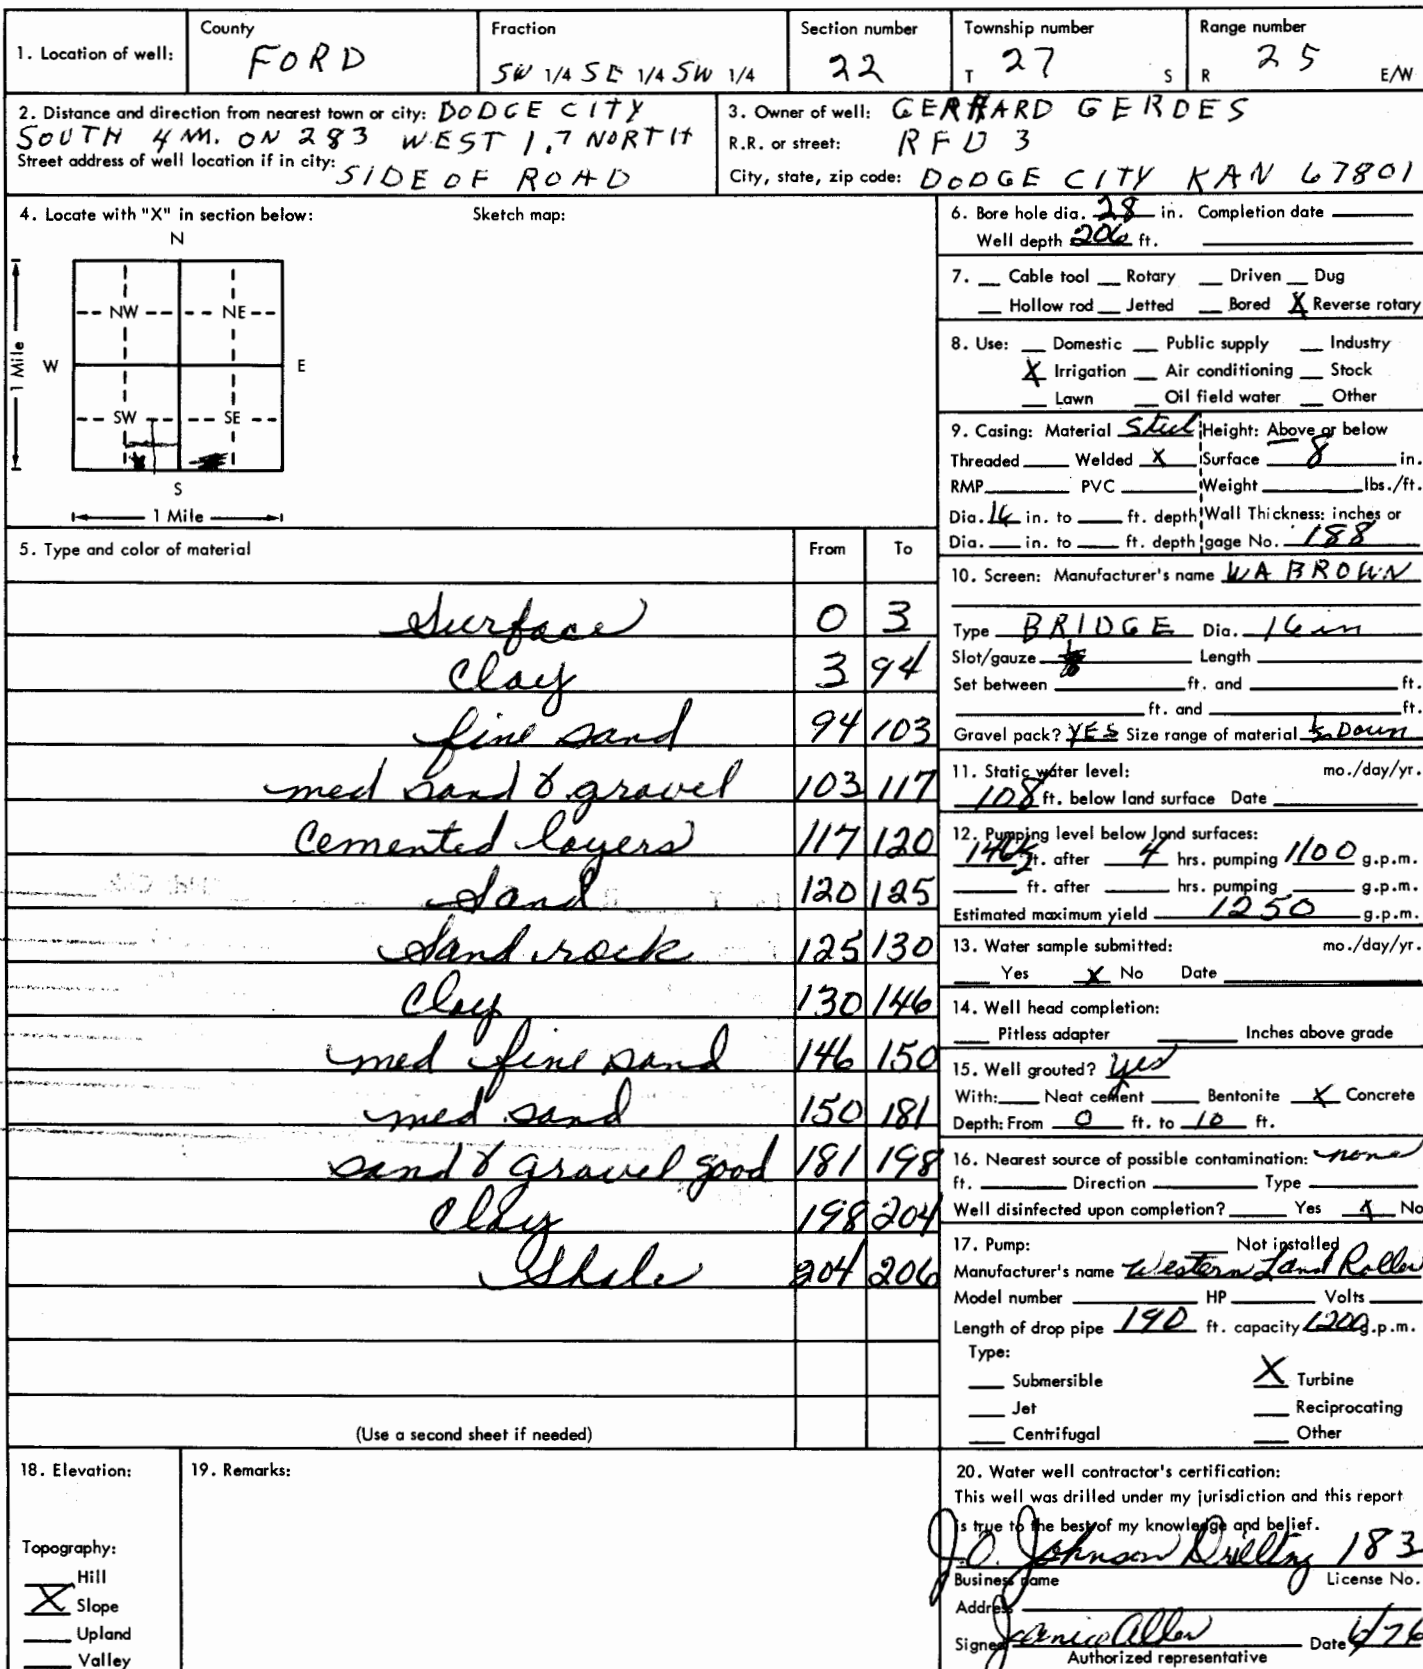 1. Location of well: County FORD Fraction SW 1/4 SE 1/4 SW 1/4 Section number 22 Township number T 27 S Range number R 25 E/W
2. Distance and direction from nearest town or city: DODGE CITY
SOUTH 4 M. ON 283 WEST 1.7 NORTH
Street address of well location if in city: SIDE OF ROAD
3. Owner of well: GERHARD GERDES
R.R. or street: RFD 3
City, state, zip code: DODGE CITY KAN 67801
4. Locate with "X" in section below: Sketch map:
N
NW NE
W E
1 Mile
SW SE
S
1 Mile
5. Type and color of material From To
Surface 0 3
Clay 3 94
fine sand 94 103
med sand & gravel 103 117
Cemented layers 117 120
Sand 120 125
Sand rock 125 130
Clay 130 146
med fine sand 146 150
med sand 150 181
sand & gravel good 181 198
Clay 198 204
Shale 204 206
(Use a second sheet if needed)
6. Bore hole dia. 28 in. Completion date
Well depth 206 ft.
7. Cable tool Rotary Driven Dug
Hollow rod Jetted Bored X Reverse rotary
8. Use: Domestic Public supply Industry
X Irrigation Air conditioning Stock
Lawn Oil field water Other
9. Casing: Material Steel Height: Above or below
Threaded Welded X Surface 8 in.
RMP PVC Weight lbs./ft.
Dia. 16 in. to ft. depth Wall Thickness: inches or
Dia. in. to ft. depth gage No. 188
10. Screen: Manufacturer's name WA BROWN
Type BRIDGE Dia. 16 in
Slot/gauze Length
Set between ft. and ft.
ft. and ft.
Gravel pack? YES Size range of material Down
11. Static water level: mo./day/yr.
108 ft. below land surface Date
12. Pumping level below land surfaces:
ft. after 4 hrs. pumping 1100 g.p.m.
ft. after hrs. pumping g.p.m.
Estimated maximum yield 1250 g.p.m.
13. Water sample submitted: mo./day/yr.
Yes X No Date
14. Well head completion:
Pitless adapter Inches above grade
15. Well grouted? yes
With: Neat cement Bentonite X Concrete
Depth: From 0 ft. to 10 ft.
16. Nearest source of possible contamination: none
ft. Direction Type
Well disinfected upon completion? Yes X No
17. Pump: Not installed
Manufacturer's name Western Land Roller
Model number HP Volts
Length of drop pipe 190 ft. capacity 1200 g.p.m.
Type:
Submersible X Turbine
Jet Reciprocating
Centrifugal Other
18. Elevation:
Topography:
Hill
X Slope
Upland
Valley
19. Remarks:
20. Water well contractor's certification:
This well was drilled under my jurisdiction and this report
is true to the best of my knowledge and belief.
J.O. Johnson Drilling 183
Business name License No.
Address
Signed Janice Allen Date 6/76
Authorized representative